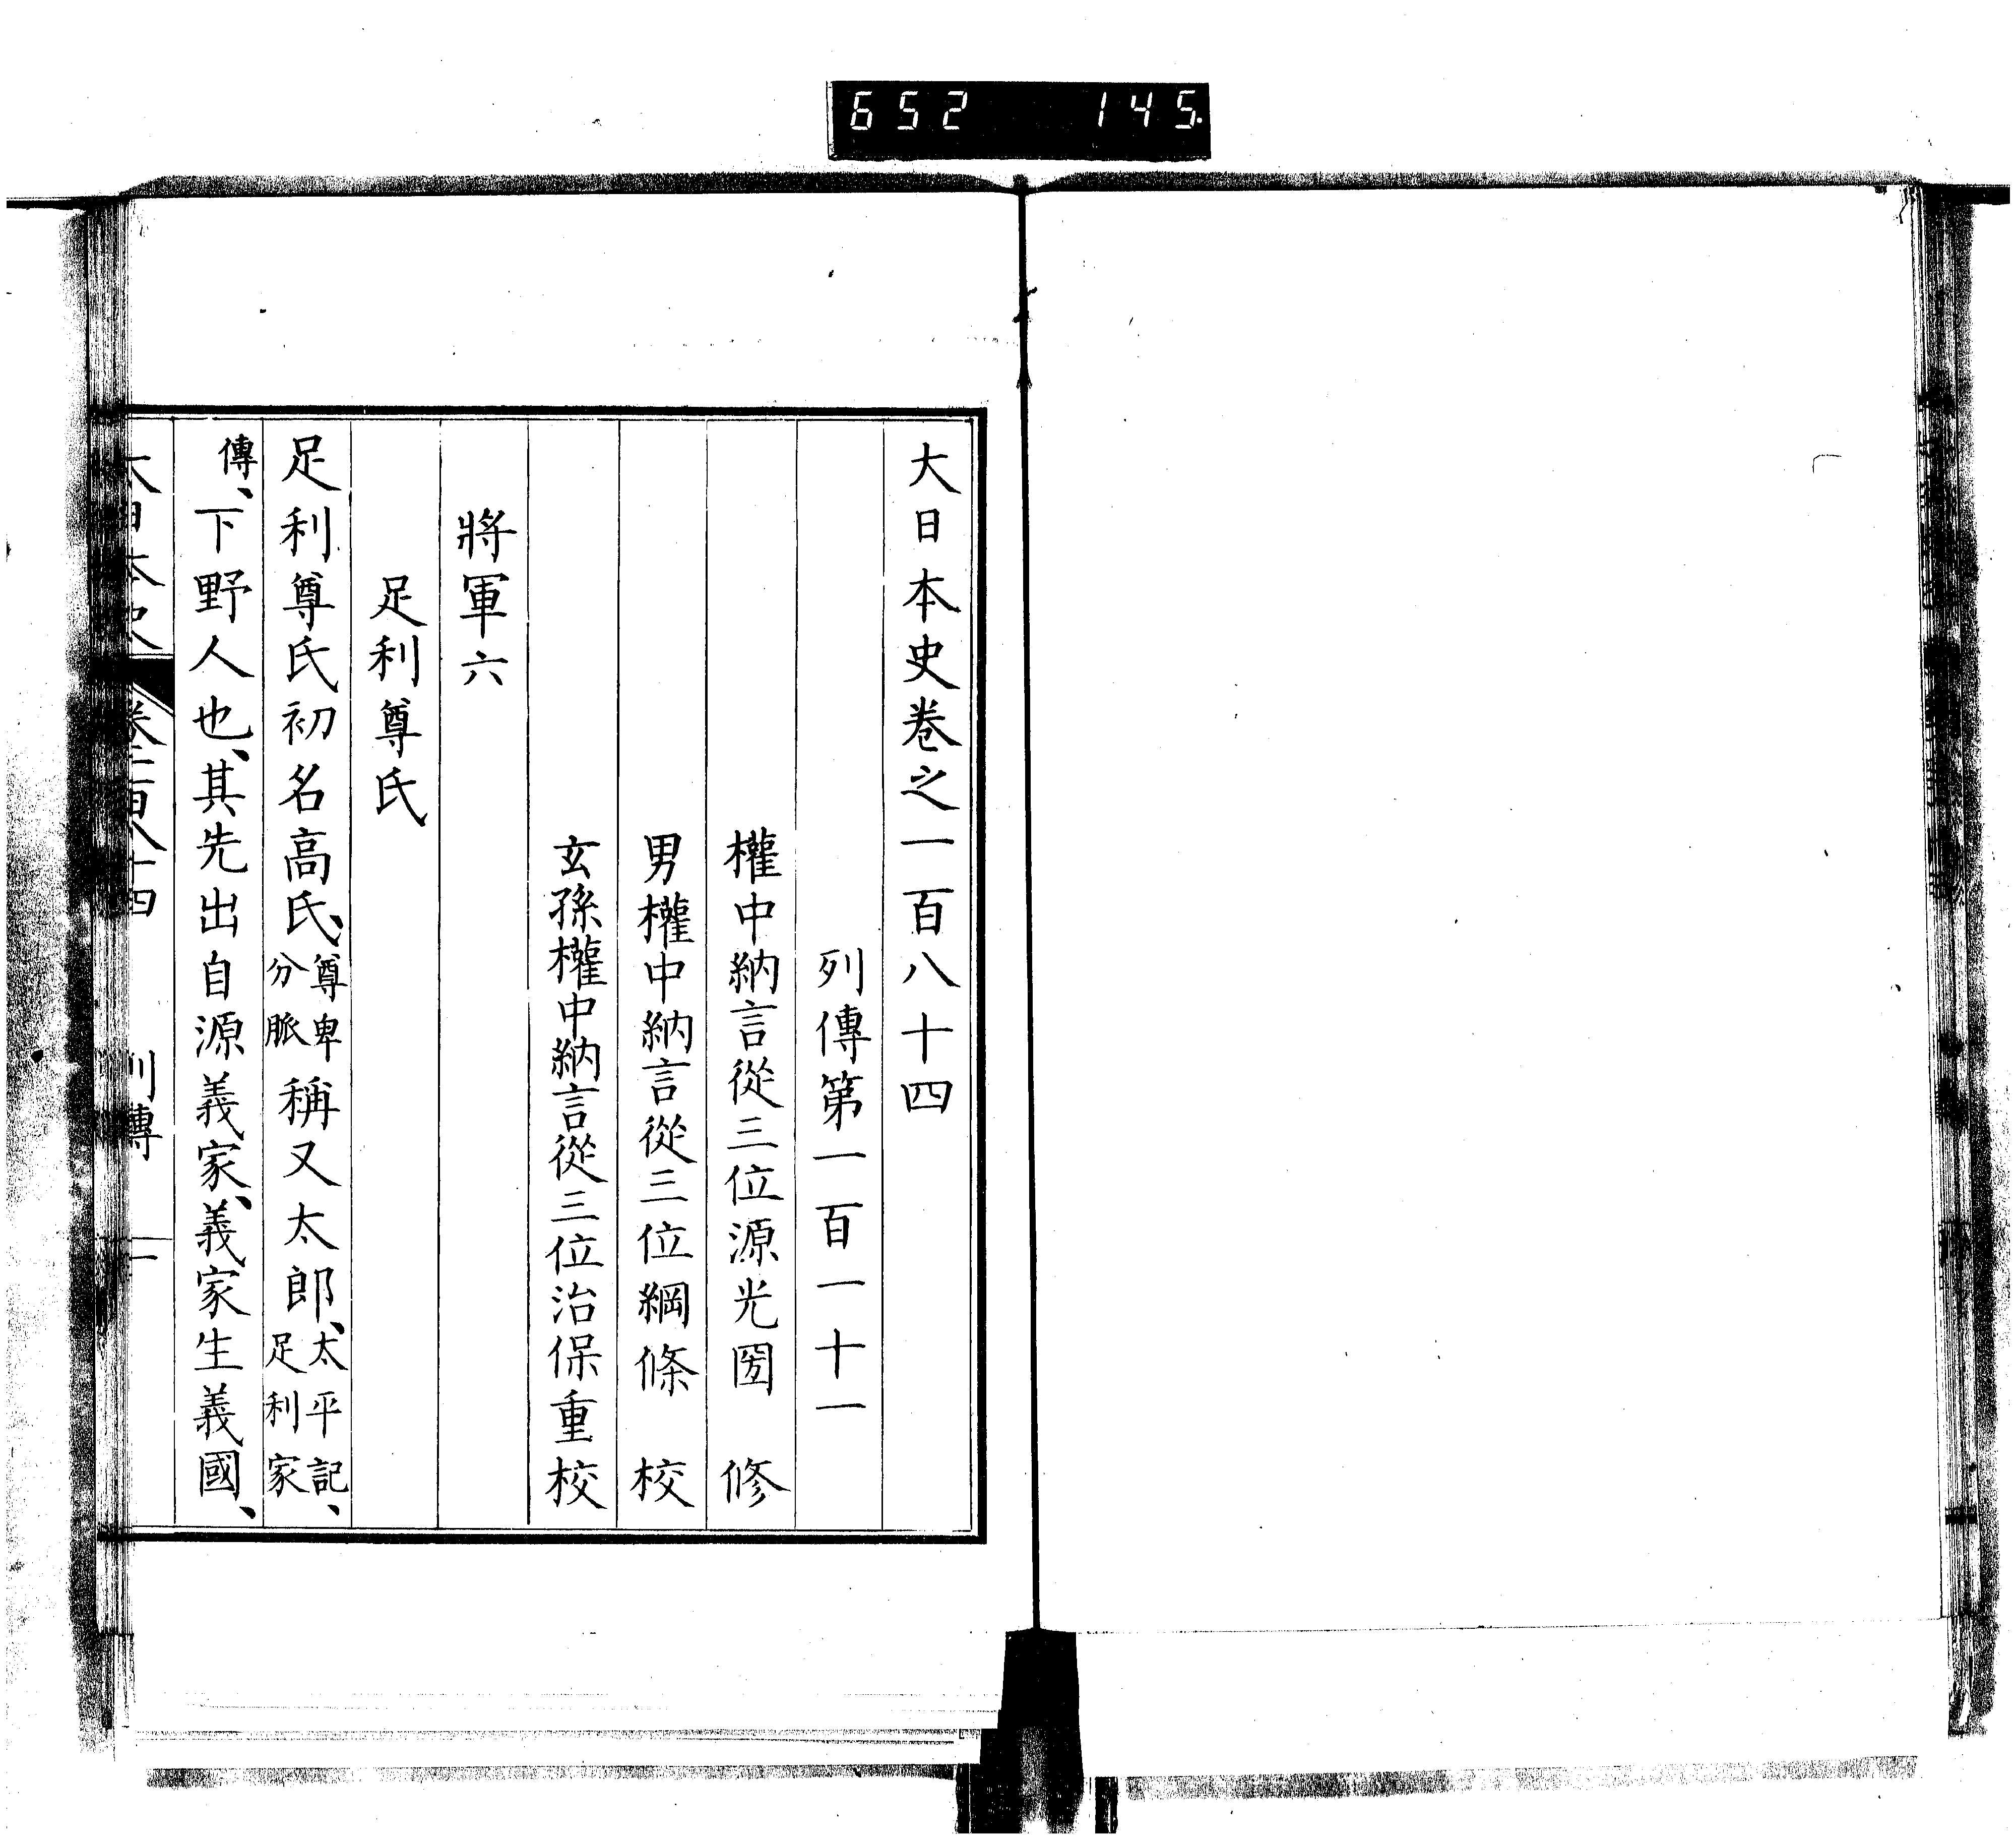 652 145
大日本史卷之一百八十四
列傳第一百一十一
權中納言從三位源光圀 修
男權中納言從三位綱條 校
玄孫權中納言從三位治保重校
將軍六
足利尊氏
足利尊氏初名高氏、尊卑分脈稱又太郎、太平記、足利家
傳、下野人也、其先出自源義家、義家生義國、
大日本史 卷一百八十四 列傳 一